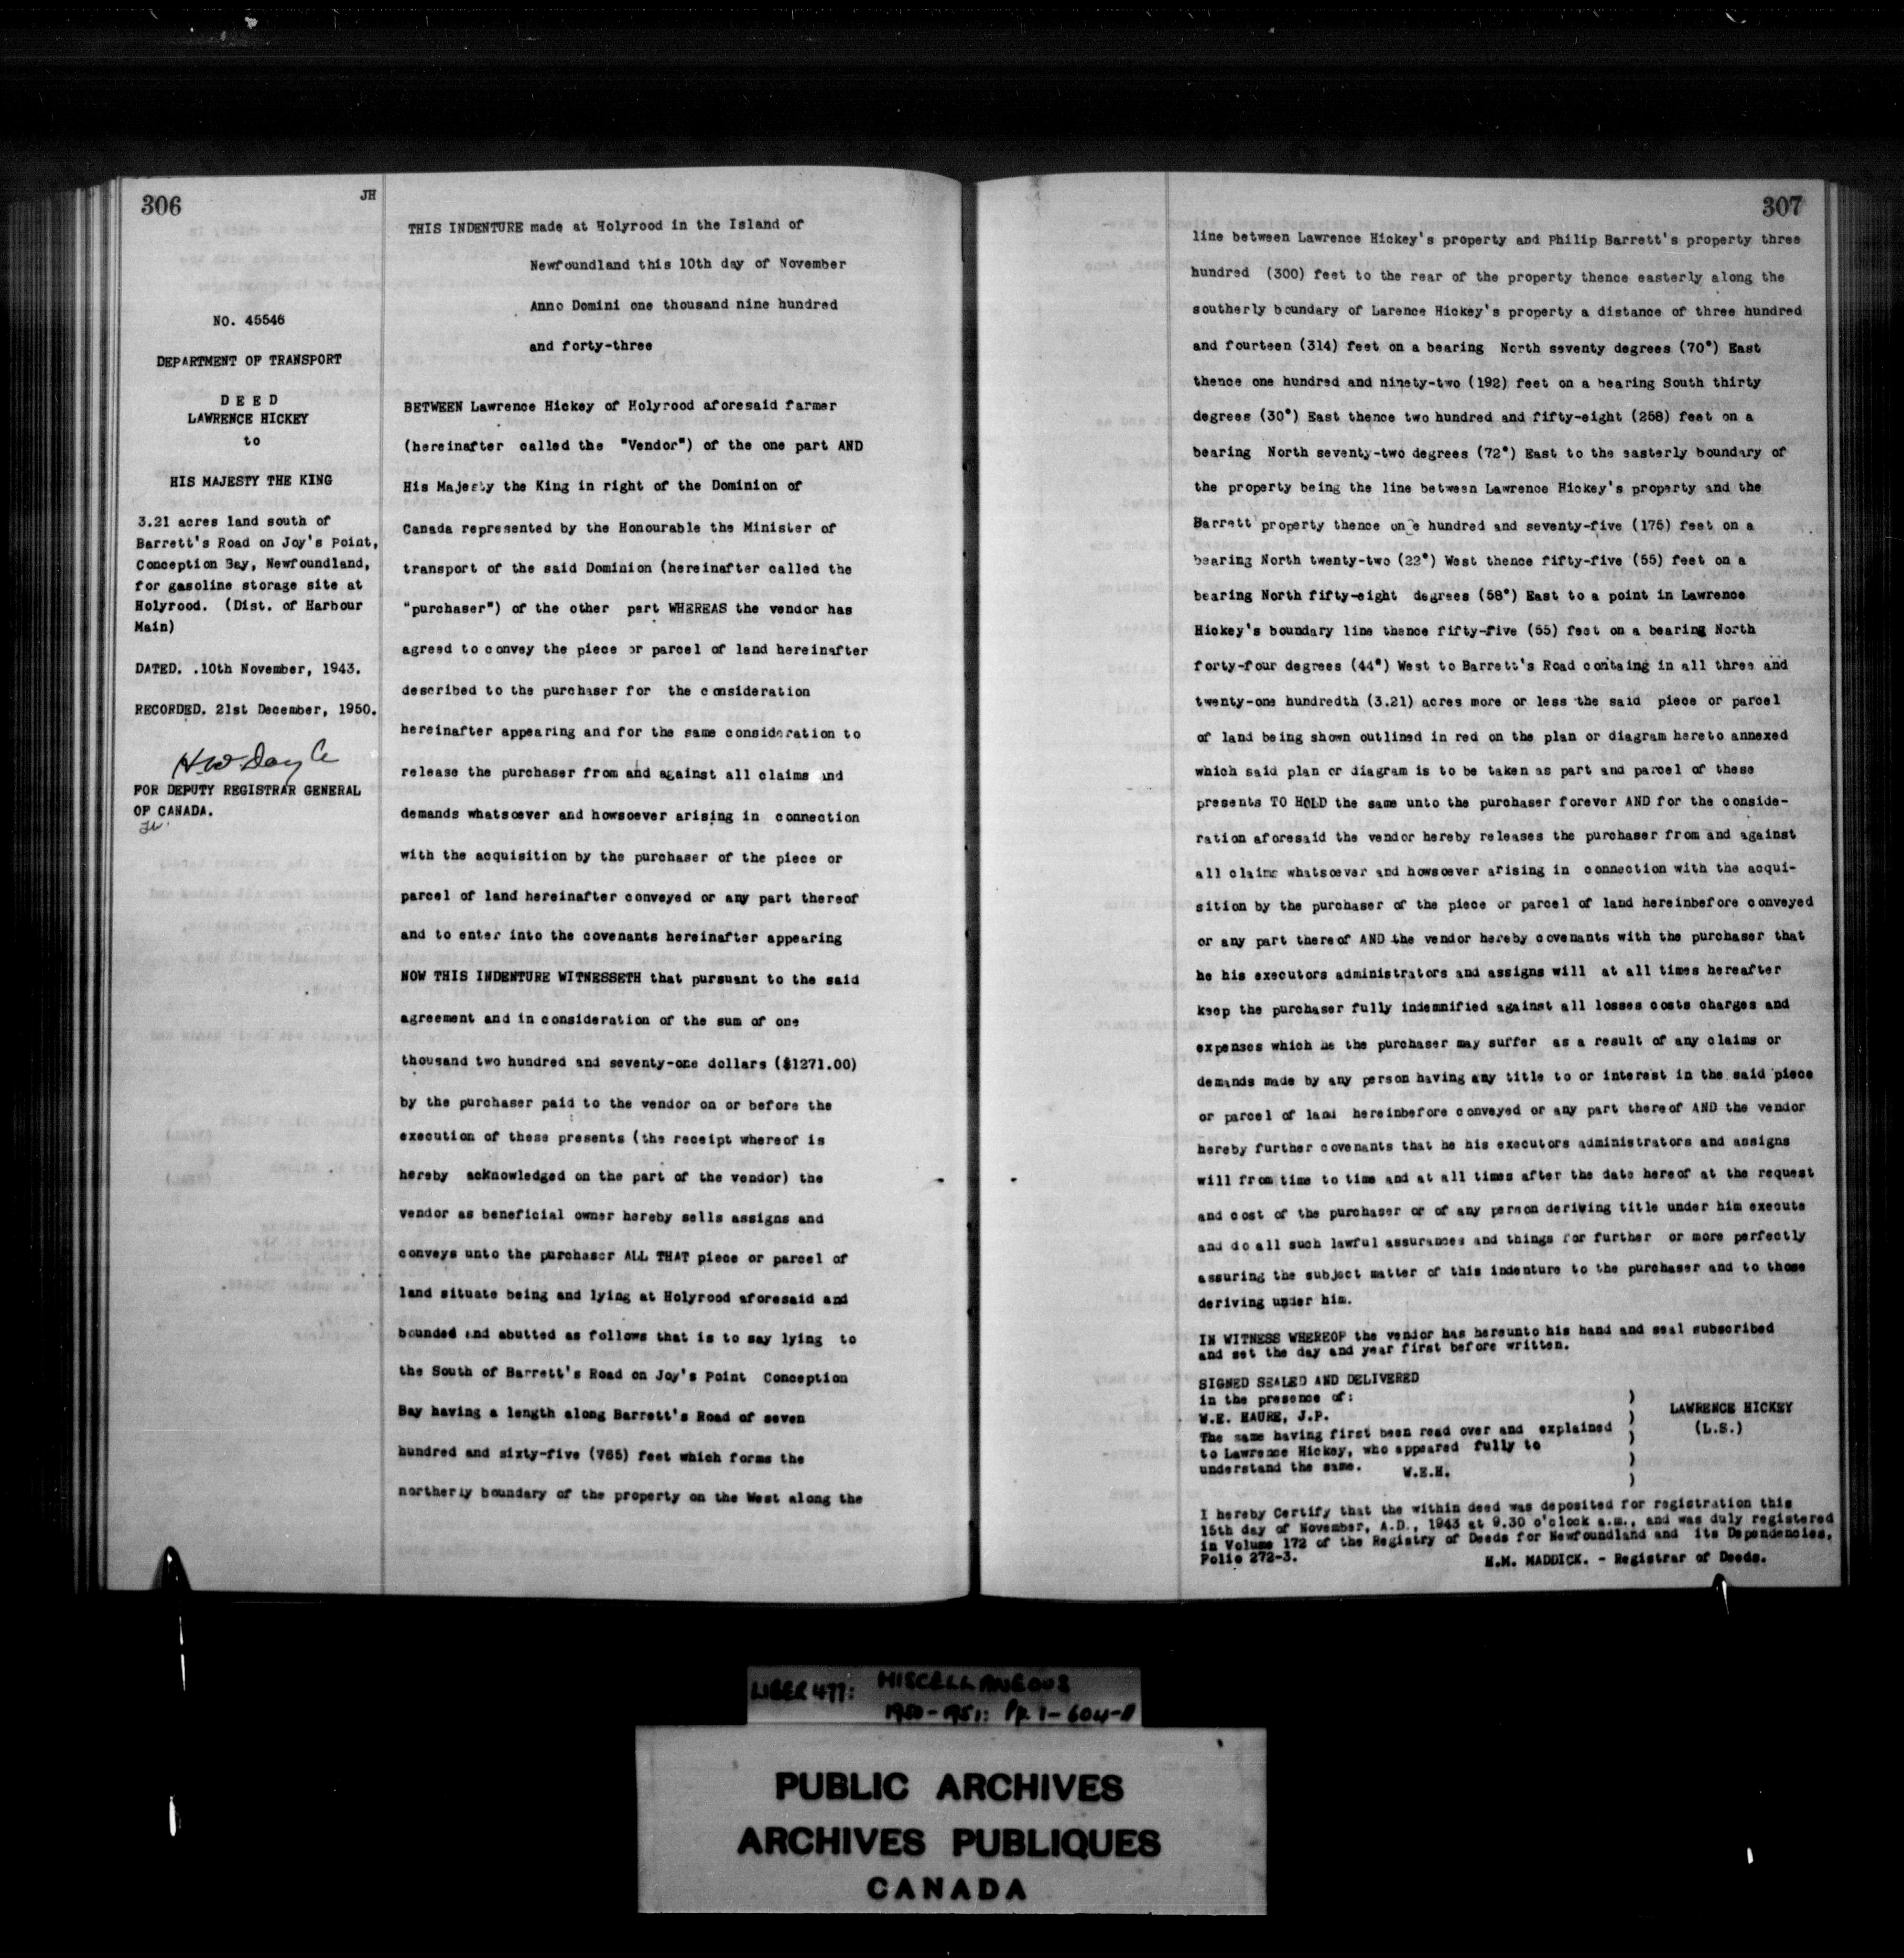 306
JH
NO. 45546
DEPARTMENT OF TRANSPORT
D E E D
LAWRENCE HICKEY
to
HIS MAJESTY THE KING
3.21 acres land south of
Barrett's Road on Joy's Point,
Conception Bay, Newfoundland,
for gasoline storage site at
Holyrood. (Dist. of Harbour
Main)
DATED. .10th November, 1943.
RECORDED. 21st December, 1950.
FOR DEPUTY REGISTRAR GENERAL
OF CANADA.
THIS INDENTURE made at Holyrood in the Island of
Newfoundland this 10th day of November
Anno Domini one thousand nine hundred
and forty-three
BETWEEN Lawrence Hickey of Holyrood aforesaid farmer
(hereinafter called the "Vendor") of the one part AND
His Majesty the King in right of the Dominion of
Canada represented by the Honourable the Minister of
transport of the said Dominion (hereinafter called the
"purchaser") of the other part WHEREAS the vendor has
agreed to convey the piece or parcel of land hereinafter
described to the purchaser for the consideration
hereinafter appearing and for the same consideration to
release the purchaser from and against all claims and
demands whatsoever and howsoever arising in connection
with the acquisition by the purchaser of the piece or
parcel of land hereinafter conveyed or any part thereof
and to enter into the covenants hereinafter appearing
NOW THIS INDENTURE WITNESSETH that pursuant to the said
agreement and in consideration of the sum of one
thousand two hundred and seventy-one dollars ($1271.00)
by the purchaser paid to the vendor on or before the
execution of these presents (the receipt whereof is
hereby acknowledged on the part of the vendor) the
vendor as beneficial owner hereby sells assigns and
conveys unto the purchaser ALL THAT piece or parcel of
land situate being and lying at Holyrood aforesaid and
bounded and abutted as follows that is to say lying to
the South of Barrett's Road on Joy's Point Conception
Bay having a length along Barrett's Road of seven
hundred and sixty-five (765) feet which forms the
northerly boundary of the property on the West along the
307
line between Lawrence Hickey's property and Philip Barrett's property three
hundred (300) feet to the rear of the property thence easterly along the
southerly boundary of Larence Hickey's property a distance of three hundred
and fourteen (314) feet on a bearing North seventy degrees (70°) East
thence one hundred and ninety-two (192) feet on a bearing South thirty
degrees (30°) East thence two hundred and fifty-eight (258) feet on a
bearing North seventy-two degrees (72°) East to the easterly boundary of
the property being the line between Lawrence Hickey's property and the
Barrett property thence one hundred and seventy-five (175) feet on a
bearing North twenty-two (22°) West thence fifty-five (55) feet on a
bearing North fifty-eight degrees (58°) East to a point in Lawrence
Hickey's boundary line thence fifty-five (55) feet on a bearing North
forty-four degrees (44°) West to Barrett's Road containg in all three and
twenty-one hundredth (3.21) acres more or less the said piece or parcel
of land being shown outlined in red on the plan or diagram hereto annexed
which said plan or diagram is to be taken as part and parcel of these
presents TO HOLD the same unto the purchaser forever AND for the conside-
ration aforesaid the vendor hereby releases the purchaser from and against
all claims whatsoever and howsoever arising in connection with the acqui-
sition by the purchaser of the piece or parcel of land hereinbefore conveyed
or any part thereof AND the vendor hereby covenants with the purchaser that
he his executors administrators and assigns will at all times hereafter
keep the purchaser fully indemnified against all losses costs charges and
expenses which he the purchaser may suffer as a result of any claims or
demands made by any person having any title to or interest in the said piece
or parcel of land hereinbefore conveyed or any part thereof AND the vendor
hereby further covenants that he his executors administrators and assigns
will from time to time and at all times after the date hereof at the request
and cost of the purchaser or of any person deriving title under him execute
and do all such lawful assurances and things for further or more perfectly
assuring the subject matter of this indenture to the purchaser and to those
deriving under him.
IN WITNESS WHEREOF the vendor has hereunto his hand and seal subscribed
and set the day and year first before written.
SIGNED SEALED AND DELIVERED
in the presence of: )
W.E. HAURE, J.P. ) LAWRENCE HICKEY
The same having first been read over and explained ) (L.S.)
to Lawrence Hickey, who appeared fully to )
understand the same. W.E.H. )
I hereby Certify that the within deed was deposited for registration this
15th day of November, A.D., 1943 at 9.30 o'clock a.m., and was duly registered
in Volume 172 of the Registry of Deeds for Newfoundland and its Dependencies,
Folio 272-3. H.M. MADDICK. - Registrar of Deeds.
LIBER 477: MISCELLANEOUS
1950-1951: Pp. 1-604-
PUBLIC ARCHIVES
ARCHIVES PUBLIQUES
CANADA